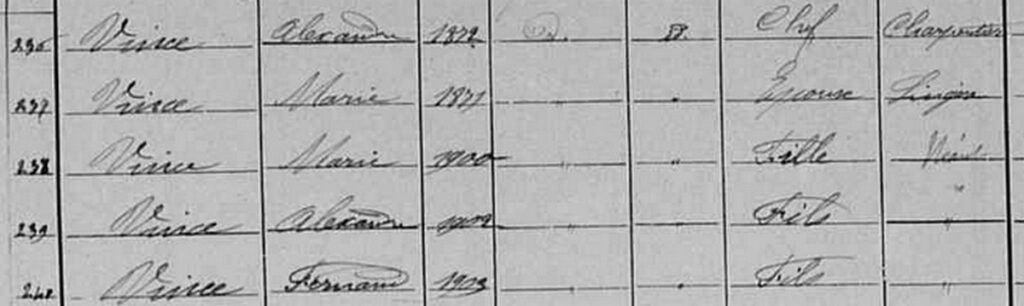 236 Vince Alexandre 1872 id. F. Chef Charpentier
237 Vince Marie 1877 " " Epouse Lingère
238 Vince Marie 1900 " " Fille Néant
239 Vince Alexandre 1902 " " Fils "
240 Vince Fernand 1903 " " Fils "